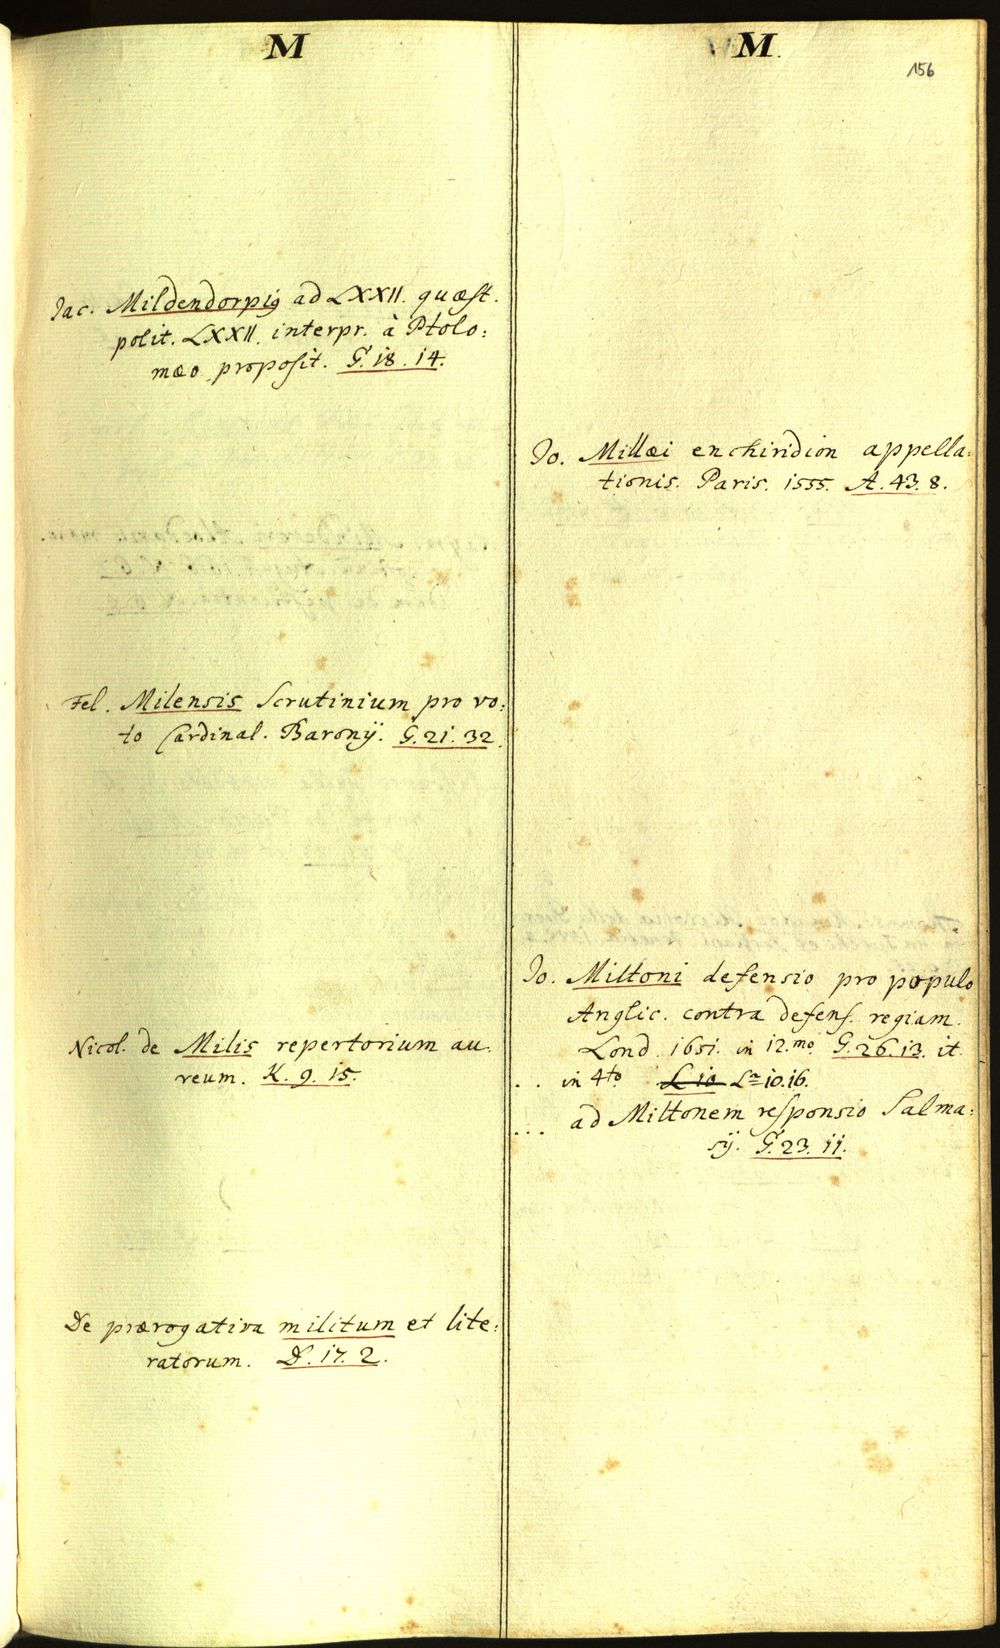 M
Jac. Mildendorpig ad LXXII. quæst.
polit. LXXII. interpr. à Ptolo:
mæo proposit. G. 18. 14.
Fel. Milensis Scrutinium pro vo:
to Cardinal. Baronÿ. G. 21. 32.
Nicol. de Milis repertorium au:
reum. K. 9. 15.
De prærogativa militum et lite:
ratorum. D. 17. 2.
M.
156
Jo. Millæi enchiridion appella:
tionis. Paris. 1555. A. 43. 8.
Jo. Miltoni defensio pro populo
Anglic. contra defens. regiam.
Lond. 1651. in 12.mo G. 26. 13. it.
. . in 4to L 10 La 10.16.
. . . ad Miltonem responsio Salma:
sÿ. G. 23. 11.